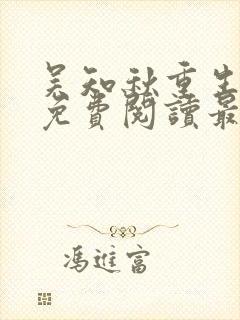 吴知秋重生
免費閱讀最
馮進富